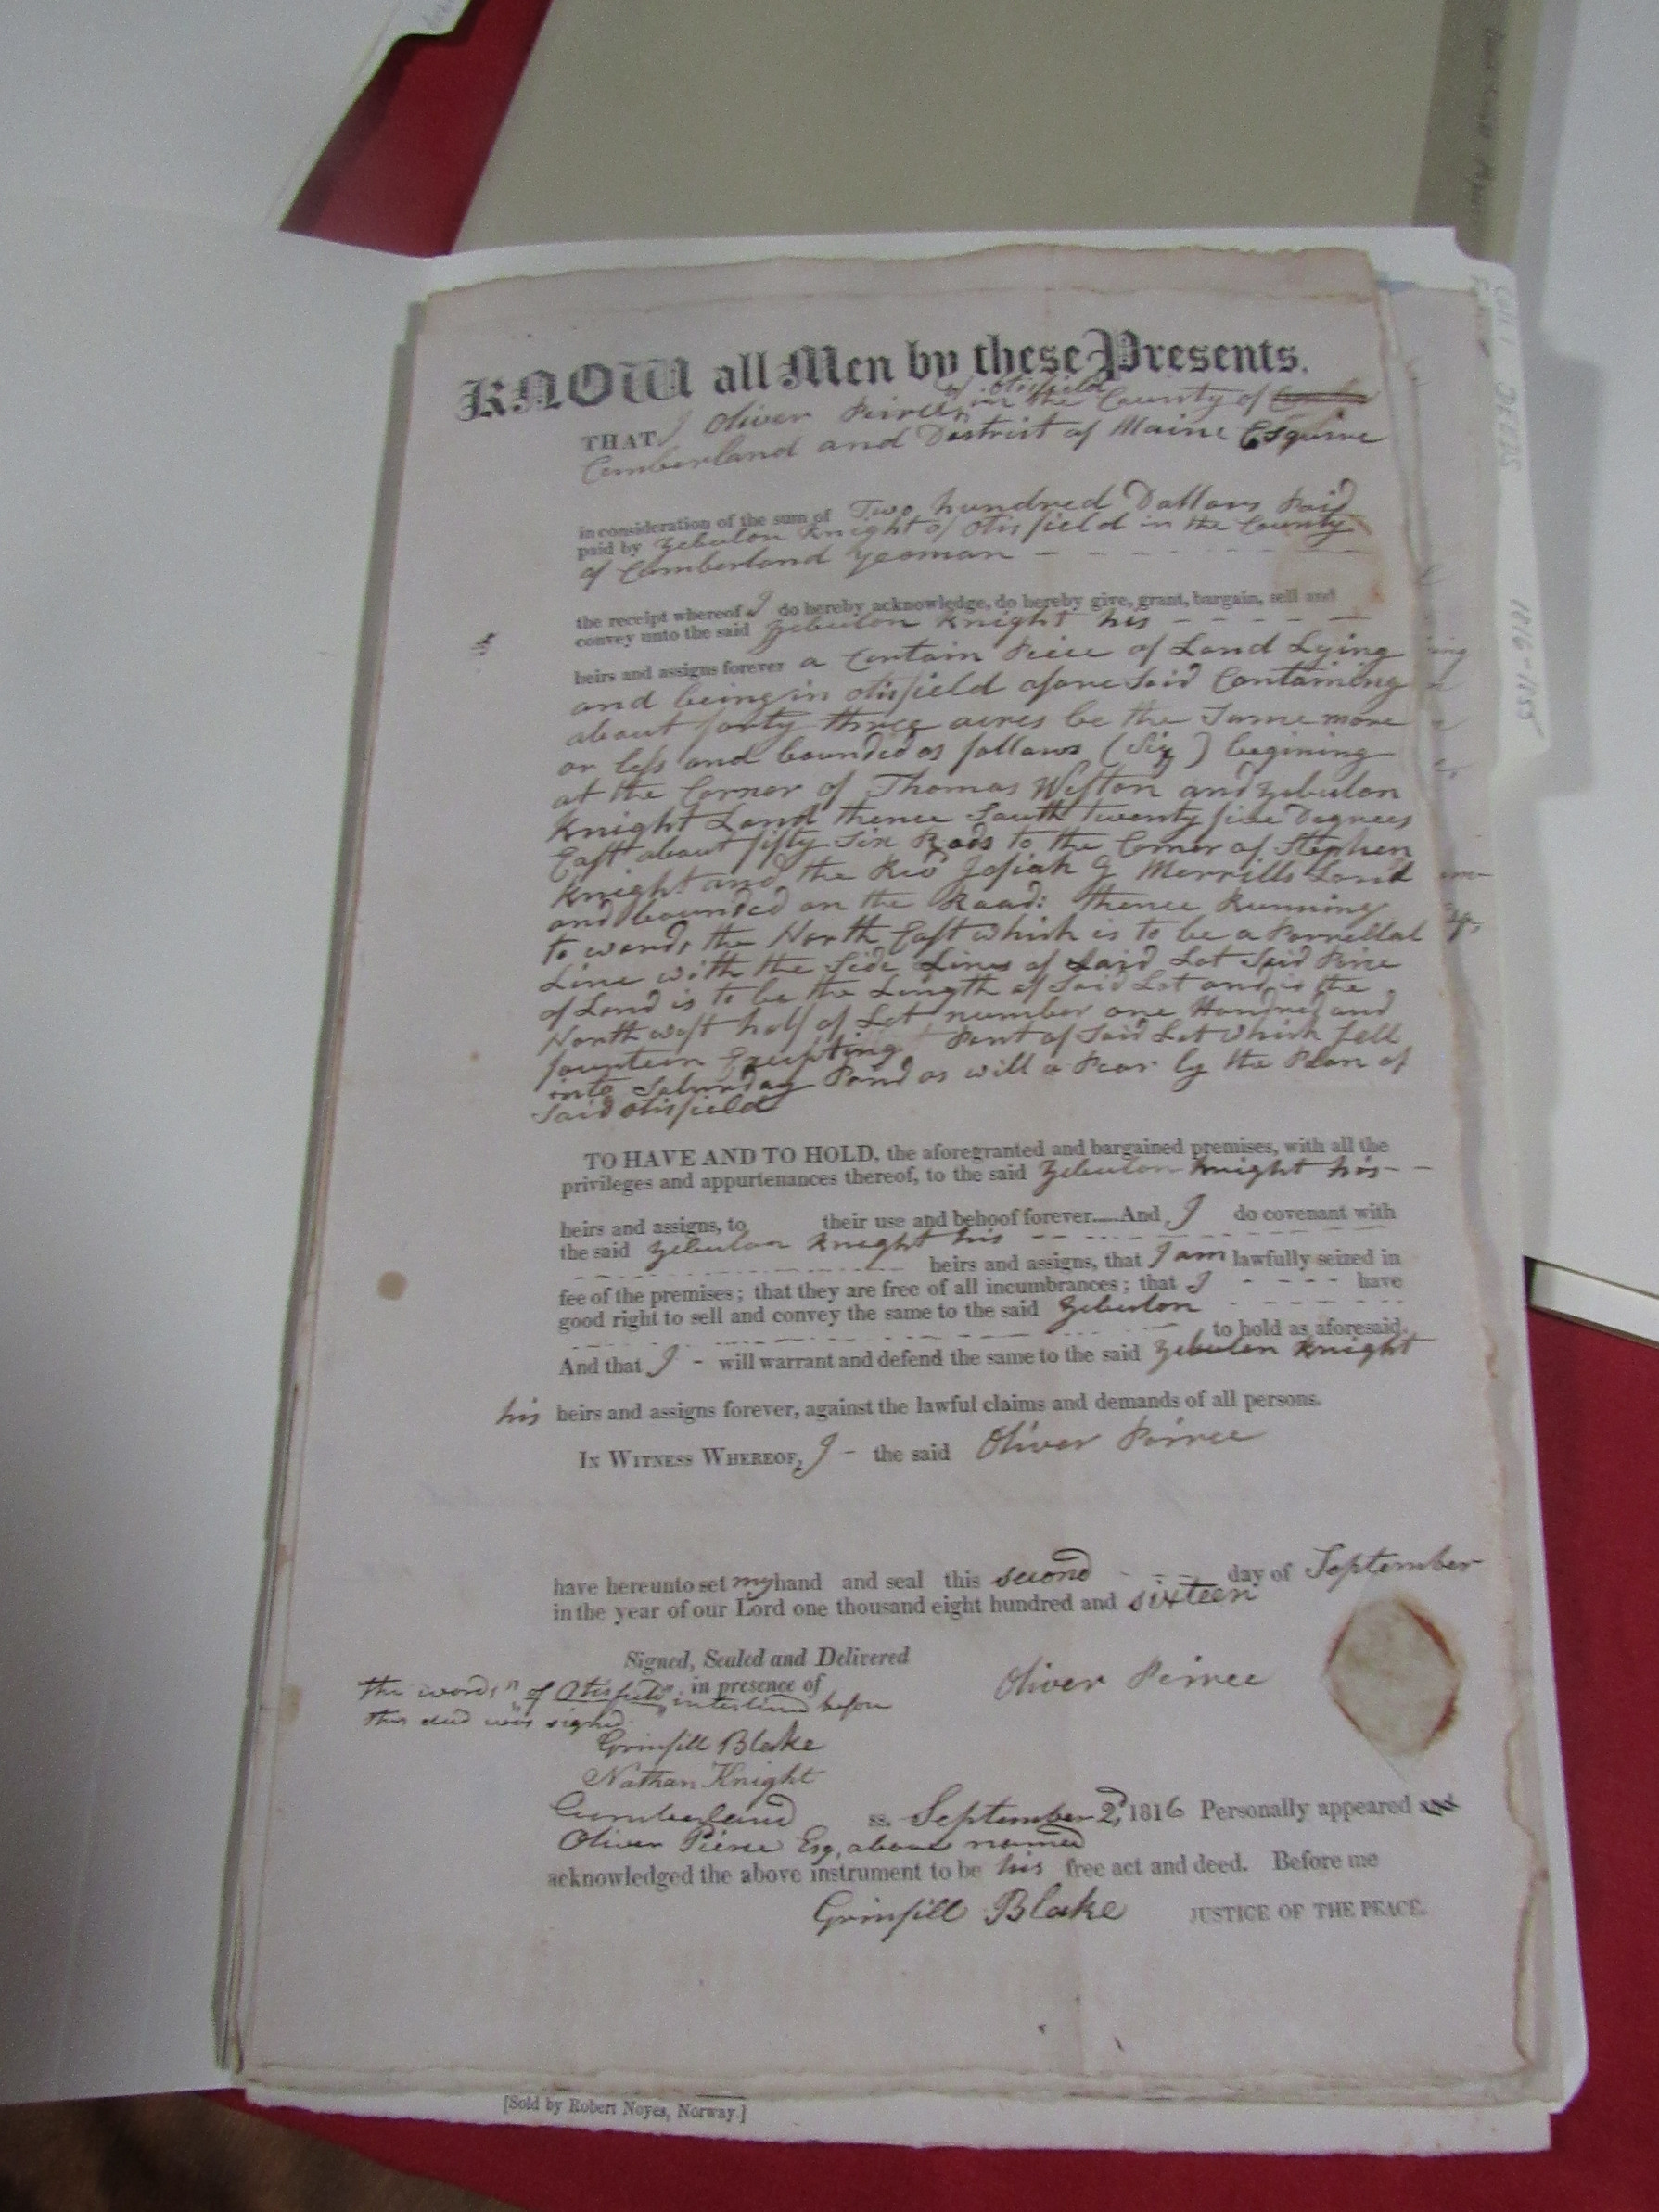 KNOW all Men by these Presents,
THAT I Oliver Peirce of Otisfield in the County of
Cumberland and District of Maine Esquire
in consideration of the sum of Two hundred Dollars Paid
paid by Zebulon Knight of Otisfield in the County
of Cumberland yeoman
the receipt whereof I do hereby acknowledge, do hereby give, grant, bargain, sell and
convey unto the said Zebulon Knight his
heirs and assigns forever a Certain Peice of Land Lying
and being in Otisfield afore Said Containing
about forty three acres be the Same more
or less and bounded as follows (Viz) begining
at the Corner of Thomas Weston and Zebulon
Knight Land thence South Twenty five Degrees
East about fifty Six Rods to the Corner of Stephen
Knight and the Rev Josiah G Merrills Land
and bounded on the Road: thence Running
to wards the North East which is to be a Parrellal
Line with the Side Lines of Said Lot Said Peice
of Land is to be the Length of Said Lot and is the
North west half of Lot number one Hundred and
fourteen Excepting Part of Said Lot which fell
into Saturday Pond as will a Pear by the Plan of
Said Otisfield
TO HAVE AND TO HOLD, the aforegranted and bargained premises, with all the
privileges and appurtenances thereof, to the said Zebulon Knight his
heirs and assigns, to their use and behoof forever.....And I do covenant with
the said Zebulon Knight his
heirs and assigns, that I am lawfully seized in
fee of the premises; that they are free of all incumbrances; that I have
good right to sell and convey the same to the said Zebulon
to hold as aforesaid.
And that I - will warrant and defend the same to the said Zebulon Knight
his heirs and assigns forever, against the lawful claims and demands of all persons.
IN WITNESS WHEREOF, I - the said Oliver Peirce
have hereunto set my hand and seal this second day of September
in the year of our Lord one thousand eight hundred and sixteen
Signed, Sealed and Delivered
in presence of
Oliver Peirce
the words "of Otisfield" interlined before
this deed was signed
Grinfill Blake
Nathan Knight
Cumberland ss. September 2d, 1816 Personally appeared
Oliver Pierce Esq, above named
acknowledged the above instrument to be his free act and deed. Before me
Grinfill Blake JUSTICE OF THE PEACE.
[Sold by Robert Noyes, Norway.]
DEEDS
1816-1855